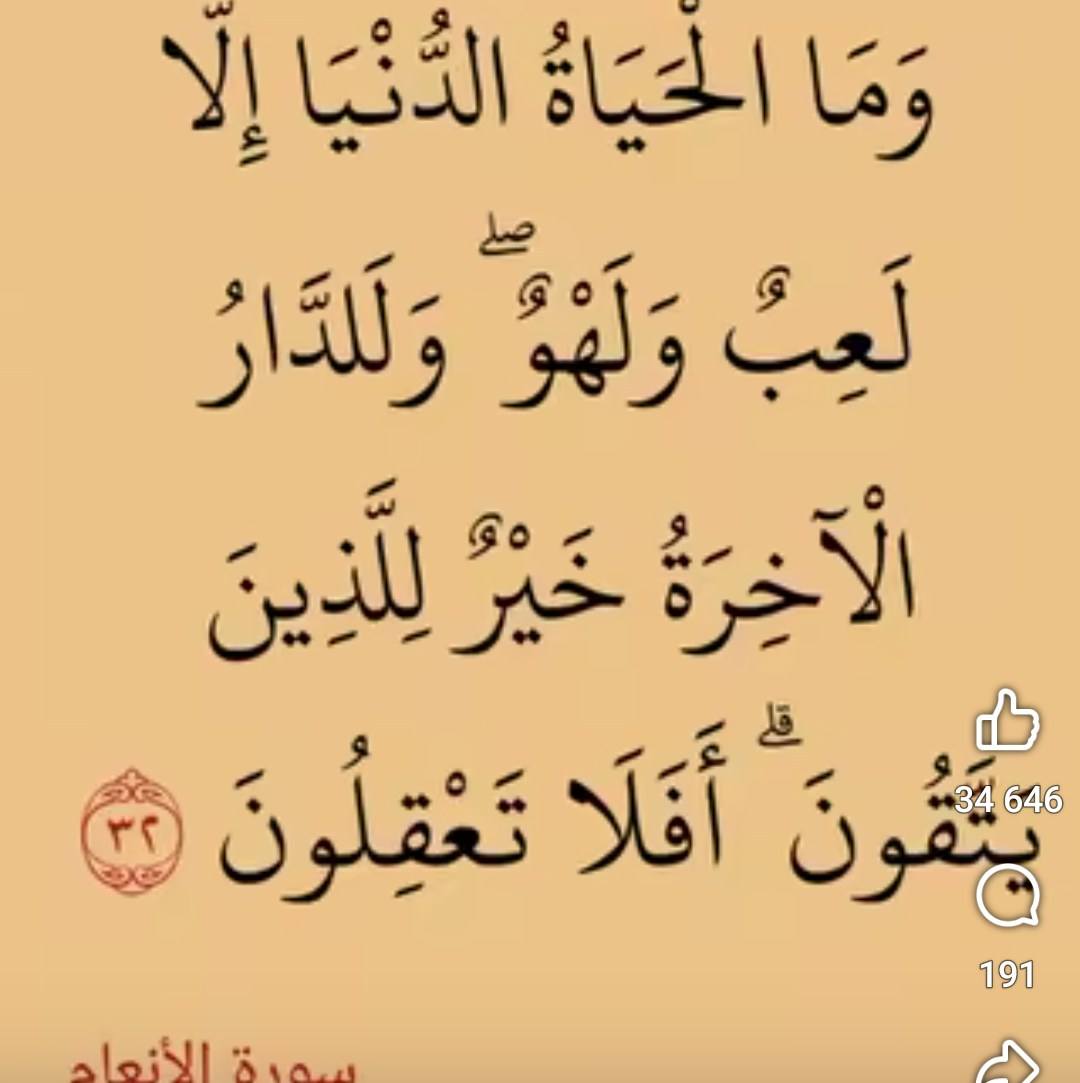 وَمَا الْحَيَاةُ الدُّنْيَا إِلَّا
لَعِبٌ وَلَهْوٌ ۖ وَلَلدَّارُ
الْآخِرَةُ خَيْرٌ لِلَّذِينَ
يَتَّقُونَ ۗ أَفَلَا تَعْقِلُونَ ٣٢
34 646
191
سورة الأنعام